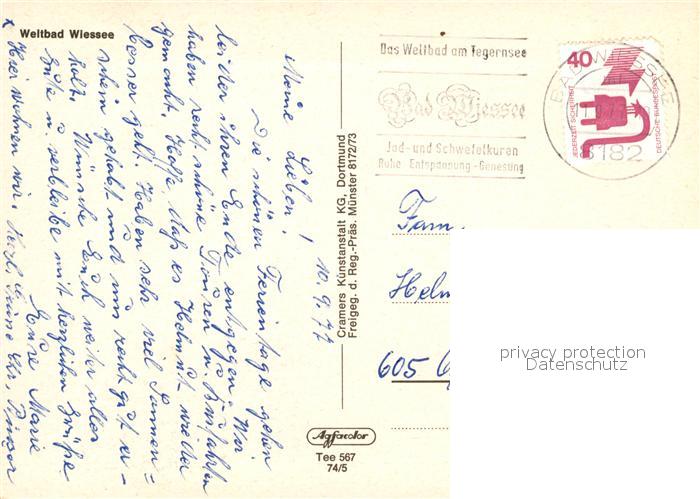 Weltbad Wiessee
x
10. 9. 77
Meine Lieben!
Die schönen Ferientage gehen
leider ihren Ende entgegen. Wir
haben recht schöne Touren u. Busfahrten
gemacht. Hoffe, daß es Helmut wieder
besser geht. Haben sehr viel Sonnen=
schein gehabt und uns recht gut er-
holt. Wünsche Euch weiter alles
Gute u. verbleibe mit herzlichen Grüße
Eure Marie
Hier wohnen wir.
Cramers Kunstanstalt KG, Dortmund
Freigeg. d. Reg.-Präs. Münster 8172/73
Agfacolor
Tee 567
74/5
Das Weltbad am Tegernsee
Bad Wiessee
Jod- und Schwefelkuren
Ruhe - Entspannung - Genesung
BAD WIESSEE
8182
40
JEDERZEIT SICHERHEIT
DEUTSCHE BUNDESPOST
Fam.
Helm
605
privacy protection
Datenschutz